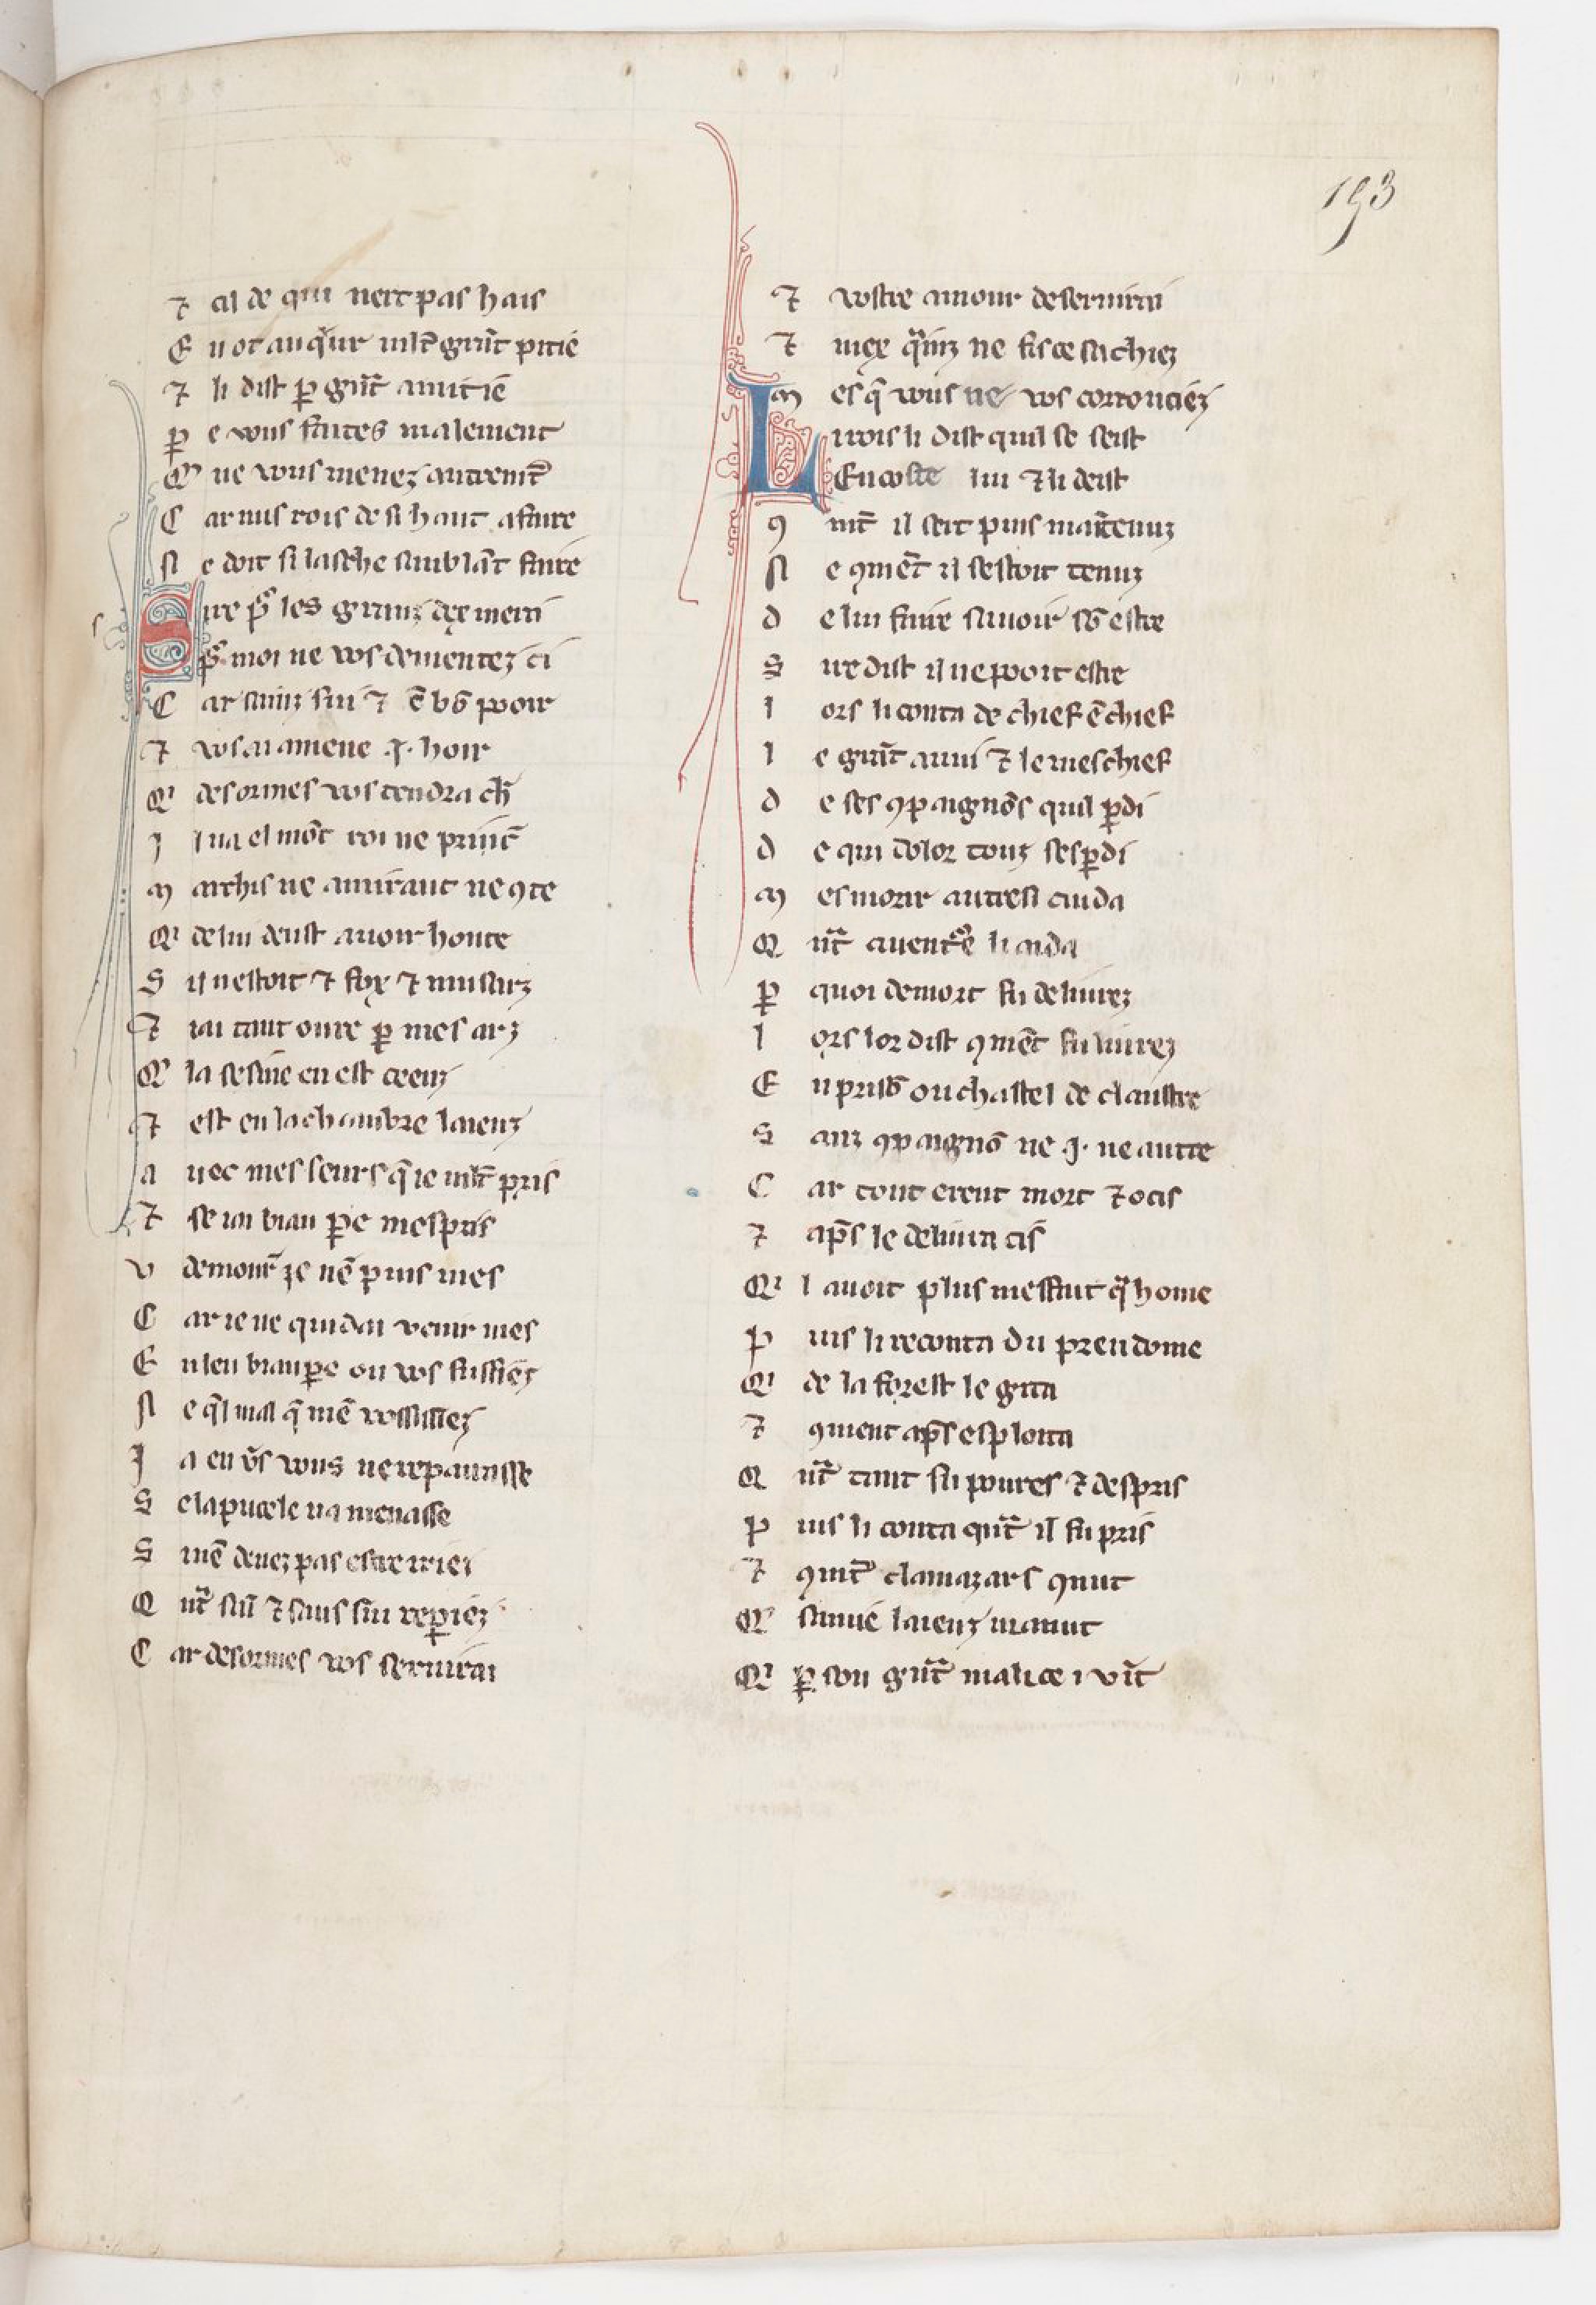 193
⁊ cil de qui nert pas hais
E n ot au q̃ur mlt̃ grãt pitie
⁊ li dist ꝑ grãt amitie
ꝑ e vous faites malement
Q' ne vous menez autremt̃
C ar nus rois de si haut afaire
N e doit si lasche samblãt faire
S ire pͦ les grainz dex merci
pͦ moi ne vos dementez ci
C ar sainz sui ⁊ ẽ bõ pooir
⁊ vos ai amene .j. hoir
Q' desormes vos tendra ch̃
I l na el mõt roi ne prĩce
M archis ne amirant ne ꝯte
Q' de lui deust avoir honte
S il nestoit ⁊ fox ⁊ musarz
⁊ iai tant ouvre ꝑ mes arz
Q' la sesine en est ceenz
⁊ est en la chambre laienz
A uec mes seurs q̃ ie mlt̃ pris
⁊ se iai biau ꝑe mespris
V demour̃ ie nẽ puis mes
C ar ie ne quidai venir mes
E n leu biau ꝑe ou vos fussiez
N e q̃l mal q̃ mẽ vossissiez
J a en v̾s vous ne repairasse
S e la pucele na menasse
S i mẽ deuez pas estre iriez
Q ñt sai ⁊ saus sui reꝑiez
C ar desormes vos seruirai
⁊ vostre amour deseruirai
⁊ mex q̃ainz ne fis ce sachiez
M es q̃ vous ne vos corrouciez
L i rois li dist quil se seist
Encoste lui ⁊ li deist
ꝯ mt̃ il sert puis maĩtenuz
N e ꝯmẽt il sestoit tenuz
D e lui faire sauoir sõ estre
S ire dist il ne pooit estre
L ors li conta de chief ẽ chief
L e grãt anui ⁊ le meschief
D e ses ꝯpaignõs quil ꝑdi
D e qui dolor touz sesꝑdi
M es morir autresi cuida
Q ñt auentͥe li aida
ꝑ quoi de mort fu deliurez
L ors lor dist ꝯmẽt fu liurez
E n prisõ ou chastel de claustre
S anz ꝯpaignõ ne .j. ne autre
C ar tout erent mort ⁊ ocis
⁊ ap̃s le deliura cis
Q' l auoit plus meffait q̃ home
P uis li reconta du preudome
Q' de la forest le gita
⁊ ꝯment ap̃s esploita
Q ñt tant fu poures ⁊ despris
P uis li conta qñt il fu pris
⁊ ꝯmt̃ clamazars ꝯnut
Q' samie laienz mamut
Q' ꝑ son grãt malice i vĩt